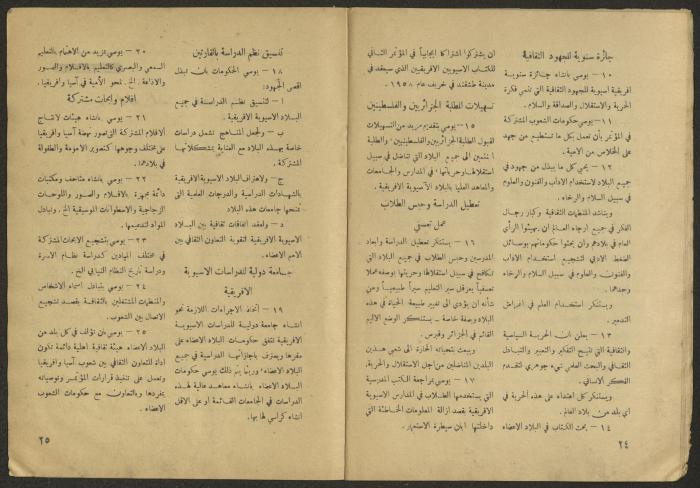 جائزة سنوية للجهود الثقافية
١٠ — يوصى بانشاء جائزة سنوية
افريقية آسيوية للجهود الثقافية التي تنمي فكرة
الحرية والاستقلال والصداقة والسلام .
١١ — يوصى حكومات الشعوب المشتركة
في المؤتمر بأن تعمل بكل ما تستطيع من جهد
على الخلاص من الامية .
١٢ — يحيي كل ما يبذل من جهود في
جميع البلاد لاستخدام الآداب والفنون والعلوم
في سبيل السلام والرخاء .
ويناشد المنظمات الثقافية وكبار رجال
الفكر في جميع ارجاء العالم ان يهيئوا الرأي
العام في بلادهم وأن يحثوا حكوماتهم بوسائل
الضغط الادبي لتشجيع استخدام الآداب
والفنون والعلوم في سبيل السلام والرخاء
وحدهما .
ويستنكر استخدام العلم في اغراض
التدمير .
١٣ — يعلن ان الحرية السياسية
والثقافية التي تتيح التفكير والتعبير والتبادل
الثقافي والبحث العلمي شيء جوهري لتقدم
الفكر الانساني .
ويستنكر كل اعتداء على هذه الحرية في
أي بلد من بلاد العالم .
١٤ — يحث الكتاب في البلاد الاعضاء
ان يشتركوا اشتراكا ايجابياً في المؤتمر الثاني
للكتاب الآسيويين الافريقيين الذي سيعقد في
مدينة طشقند في خريف عام ١٩٥٨ .
تسهيلات الطلبة الجزائريين والفلسطينيين
١٥ — يوصى بتقديم مزيد من التسهيلات
لقبول الطلبة الجزائريين والفلسطينيين والطلبة
المنتمين الى جميع البلاد التي تناضل في سبيل
استقلالها وحريتها في المدارس والجامعات
والمعاهد العليا بالبلاد الآسيوية الافريقية .
تعطيل الدراسة وحبس الطلاب
عمل تعسفي
١٦ — يستنكر تعطيل الدراسة وابعاد
المدرسين وحبس الطلاب في جميع البلاد التي
تكافح في سبيل استقلالها وحريتها بوصفه عملا
تعسفياً يعرقل سير التعليم سيراً طبيعياً ومن
شأنه ان يؤدي الى تغيير طبيعة الحياة في هذه
البلاد وبصفة خاصة — يستنكر الوضع الاليم
القائم في الجزائر وقبرص .
ويبعث بتحياته الحارة الى شعبي هذين
البلدين المناضلين من أجل الاستقلال والحرية .
١٧ — يوصى بمراجعة الكتب المدرسية
التي يستخدمها الطلاب في المدارس الآسيوية
الافريقية بقصد ازالة المعلومات الخاطئة التي
داخلتها ابان سيطرة الاستعمار .
٢٤
تنسيق نظم الدراسة بالقارتين
١٨ — يوصى الحكومات بان تبذل
اقصى الجهود :
ا — لتنسيق نظم الدراسة في جميع
البلاد الآسيوية الافريقية .
ب — ولجعل المناهج تشمل دراسات
خاصة بهذه البلاد مع العناية بمشكلاتها
المشتركة .
ج — ولاعتراف البلاد الآسيوية الافريقية
بالشهادات الدراسية والدرجات العلمية التي
تمنحها جامعات هذه البلاد
د — ولعقد اتفاقات ثقافية بين البلاد
الآسيوية الافريقية لتقوية التعاون الثقافي بين
الامم الاعضاء .
جامعة دولية للدراسات الاسيوية
الافريقية
١٩ — اتخاذ الاجراءات اللازمة نحو
انشاء جامعة دولية للدراسات الآسيوية
الافريقية تتفق حكومات البلاد الاعضاء على
مقرها ويعترف باجازاتها الدراسية في جميع
البلاد الاعضاء وريثما يتم ذلك يوصى حكومات
البلاد الاعضاء بانشاء معاهد عالية لهذه
الدراسات في الجامعات القائمة او على الاقل
انشاء كراسي لها بها .
٢٠ — يوصى بمزيد من الاهتمام بالتعليم
السمعي والبصري كالتعليم بالافلام والصور
والاذاعة الخ . لمحو الأمية في آسيا وافريقيا .
افلام وابحاث مشتركة
٢١ — يوصى بانشاء هيئات لانتاج
الافلام المشتركة التي تصور نهضة آسيا وافريقيا
على مختلف وجوهها كتصوير الامومة والطفولة
في بلادهما .
٢٢ — يوصى بانشاء متاحف ومكتبات
دائمة مجهزة بالافلام والصور واللوحات
الزجاجية والاسطوانات الموسيقية الخ . وتبادل
المواد لتدعيمها .
٢٣ — يوصى بتشجيع الابحاث المشتركة
في مختلف الميادين كدراسة نظام الاسرة
ودراسة تاريخ النظام النيابي الخ .
٢٤ — يوصى بتبادل اسماء الاشخاص
والمنظمات المشتغلين بالثقافة بقصد تشجيع
الاتصال بين الشعوب .
٢٥ — يوصى بان تؤلف في كل بلد من
البلاد الاعضاء هيئة ثقافية اهلية دائمة تكون
اداة للتعاون الثقافي بين شعوب آسيا وافريقيا
وتعمل على تنفيذ قرارات المؤتمر وتوصياته
بمفردها وبالتعاون مع حكومات الشعوب
الاعضاء .
٢٥